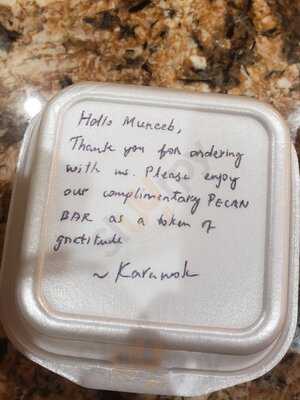 Hello Muneeb,
Thank you for ordering
with us. Please enjoy
our complimentary PECAN
BAR as a token of
gratitude
~ Karawok